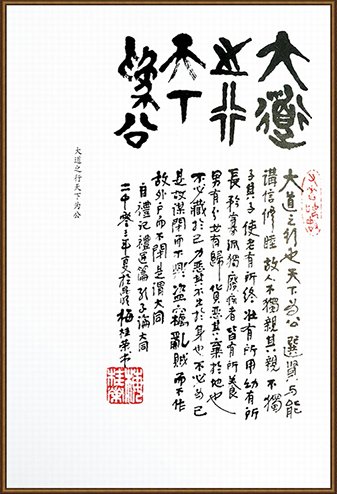 大道
之行
天下
為公
大道之行也天下為公選賢与能
講信修睦故人不獨親其親不獨
子其子使老有所終壯有所用幼有所
長矜寡孤獨廢疾者皆有所養
男有分女有歸貨惡其棄於地也
不必藏於己力惡其不出於身也不必為己
是故謀閉而不興盜竊亂賊而不作
故外户而不閉是謂大同
自禮記禮運篇孔子論大同
年夏於 梅桂荣书
大道之行天下为公